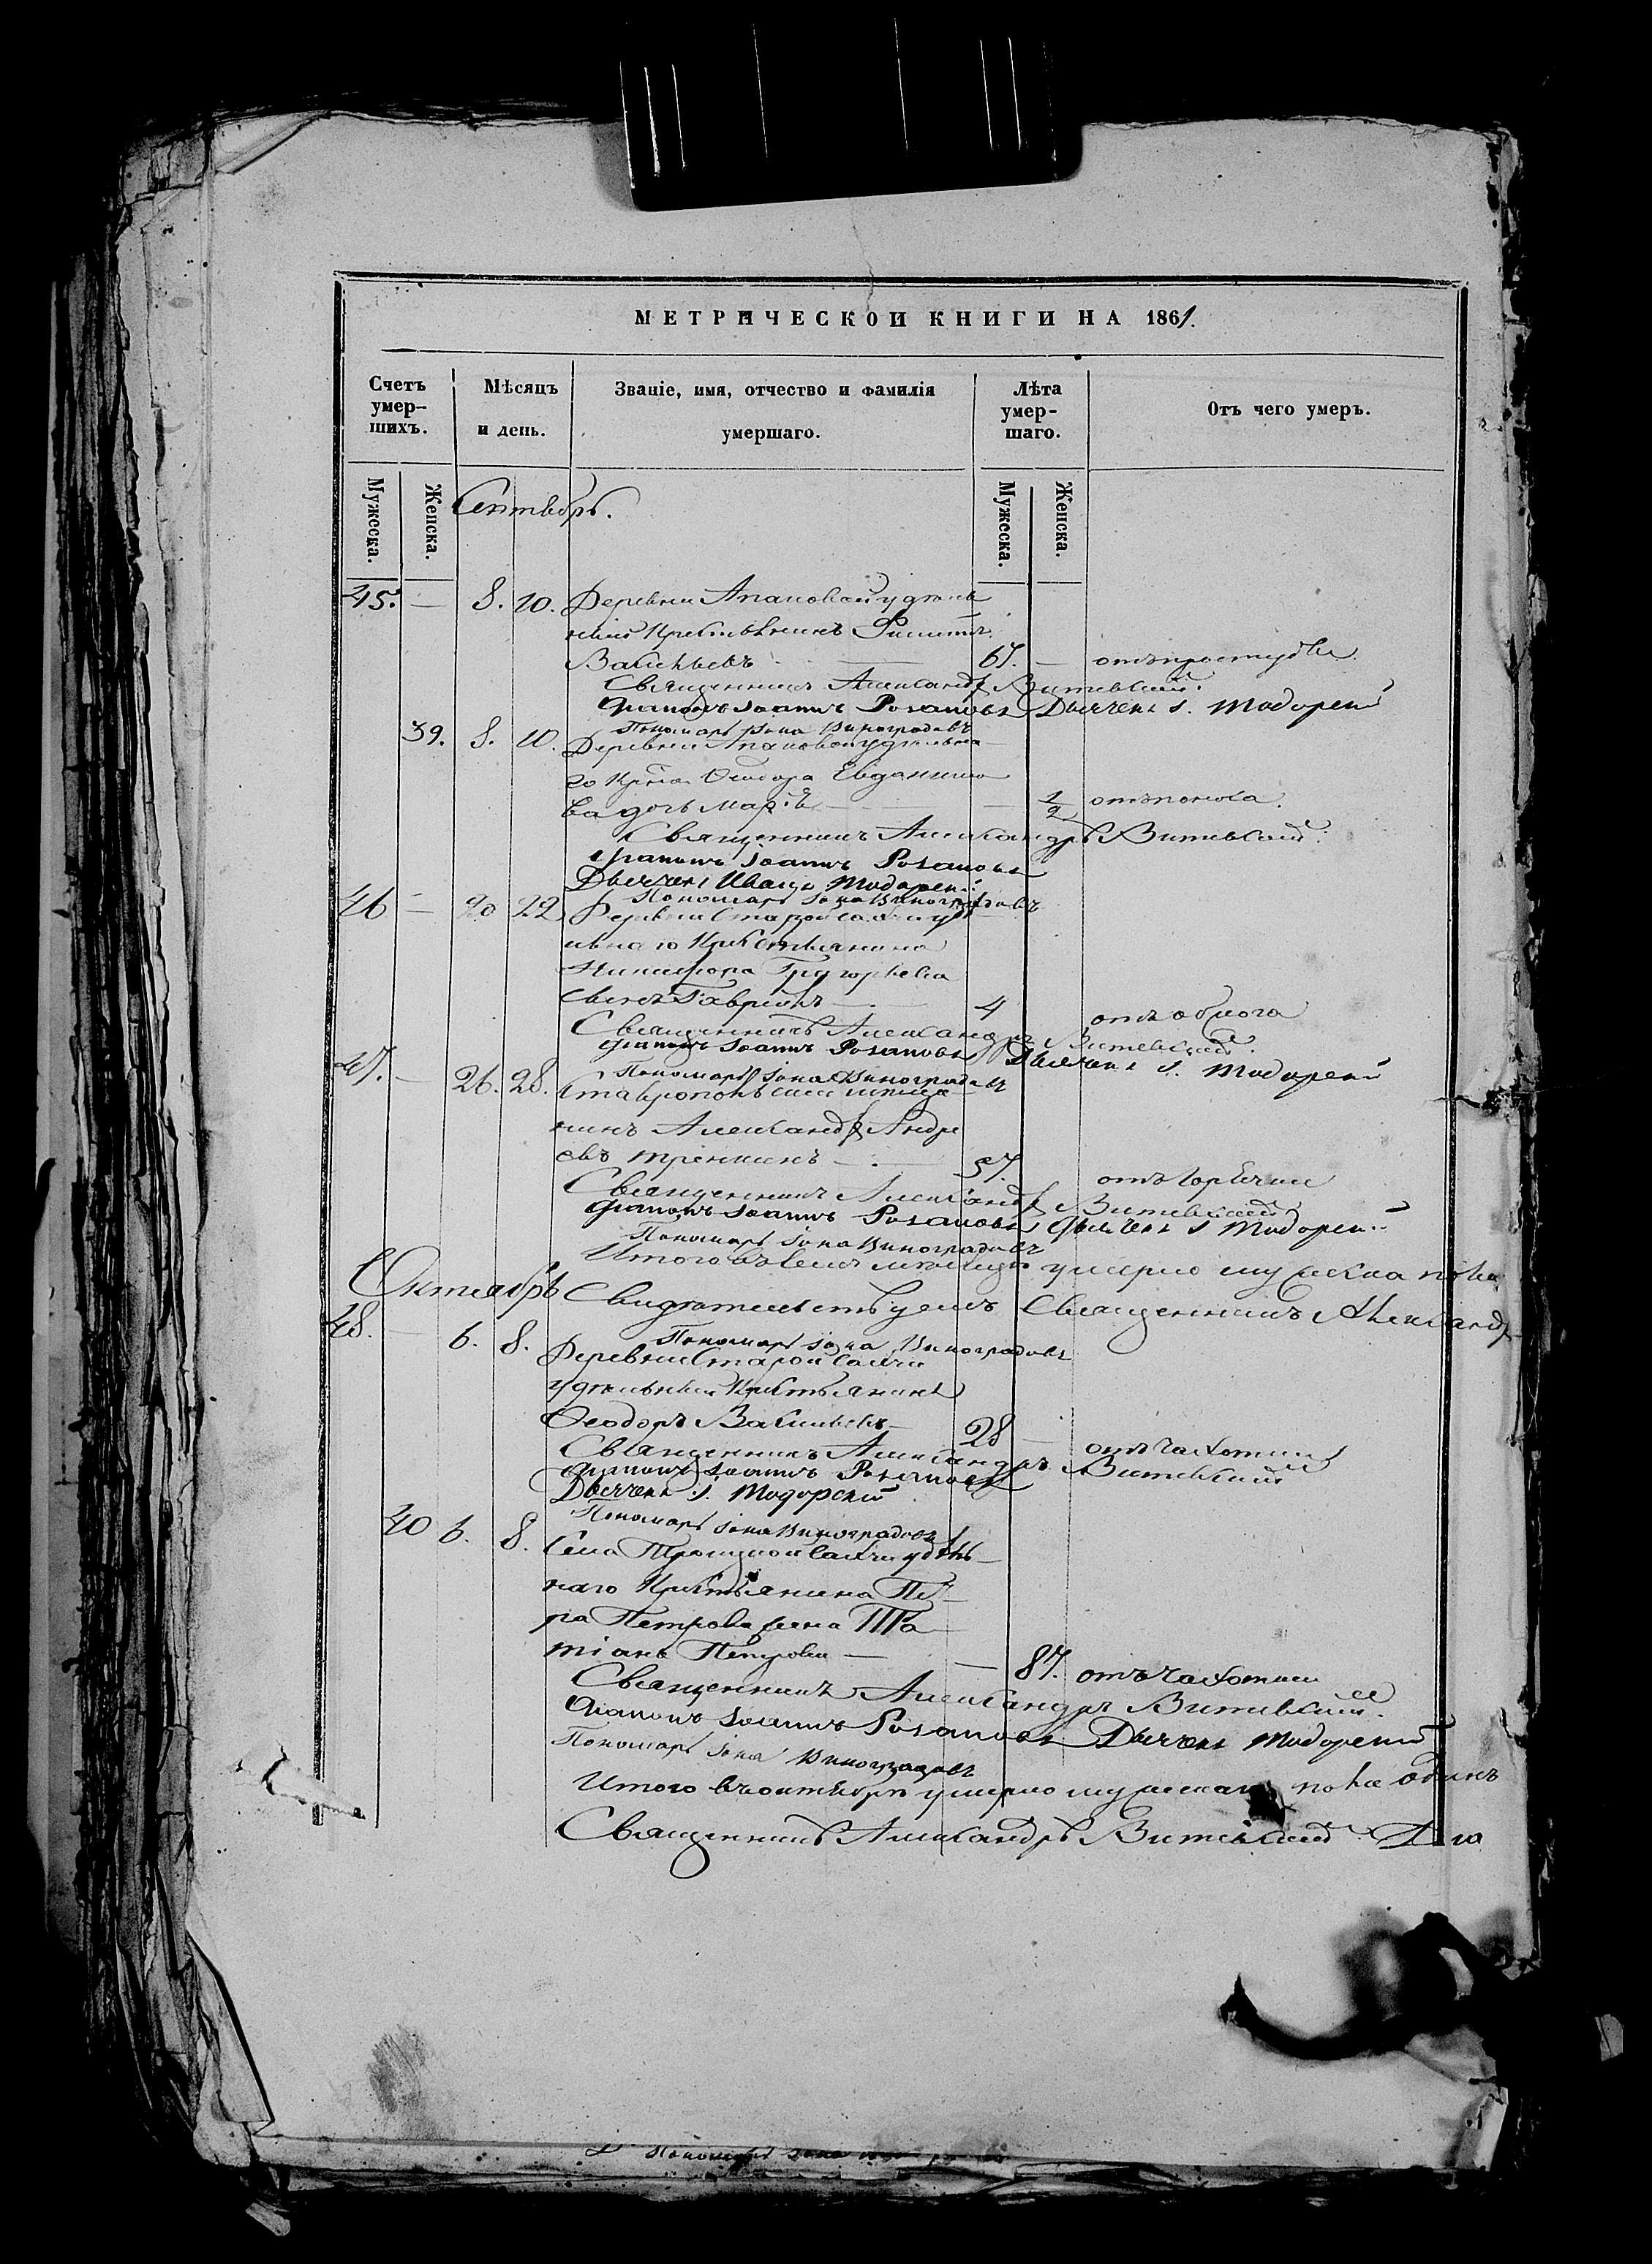 МЕТРИЧЕСКОЙ КНИГИ НА 1861.
Счетъ умер-шихъ.
Мѣсяцъ и день.
Званіе, имя, отчество и фамилія умершаго.
Лѣта умер-шаго.
Отъ чего умеръ.
Мужеска.
Женска.
Мужеска.
Женска.
Сентябрь.
45. — 8. 10. Деревни удѣль
ный Крестьянинъ
Васильевъ — 67. — отъ простуды.
Священникъ Александръ Витевскій.
Діаконъ Іоаннъ Розановъ Дьячекъ І. Модорскій
Пономарь Іона Виноградовъ
39. 8. 10. Деревни удѣльна
го Крест. Ѳеодора Евдокимо
ва дочь — 1/2 отъ поноса.
Священникъ Александръ Витевскій.
Діаконъ Іоаннъ Розановъ
Дьячекъ Иванъ Модорскій
Пономарь Іона Виноградовъ
46 — 20 22 Деревни Старой Салчи удѣ
льнаго Крестьянина
Никифора Григорьева
сынъ Гавріилъ — 4
Священникъ Александръ Витевскій.
Діаконъ Іоаннъ Розановъ Дьячекъ І. Модорскій
47. — 26. 28. Пономарь Іона Виноградовъ
Ставропольскій мѣща
нинъ Александръ Андре
евъ — 57. отъ горячки
Священникъ Александръ Витевскій
Діаконъ Іоаннъ Розановъ Дьячекъ І Модорскій
Пономарь Іона Виноградовъ
Итого въ семъ мѣсяцѣ умерло мужеска пола
Октябрь Свидѣтельствуемъ Священникъ Александръ
48. — 6. 8. Пономарь Іона Виноградовъ
Деревни Старой Салчи
удѣльный Крестьянинъ
Ѳеодоръ Васильевъ — 28 — отъ чахотки
Священникъ Александръ Витевскій
Діаконъ Іоаннъ Розановъ
Дьячекъ І. Модорскій
Пономарь Іона Виноградовъ
40 6. 8. Села Троицкой Салчи удѣль
наго Крестьянина Пе
ра Петрова жена Та
тіана Петрова — — 87. отъ чахотки
Священникъ Александръ Витевскій.
Діаконъ Іоаннъ Розановъ Дьячекъ Модорскій
Пономарь Іона Виноградовъ
Итого въ октябрѣ умерло мужеска пола одинъ
Священникъ Александръ Витевскій
Пономарь Іона